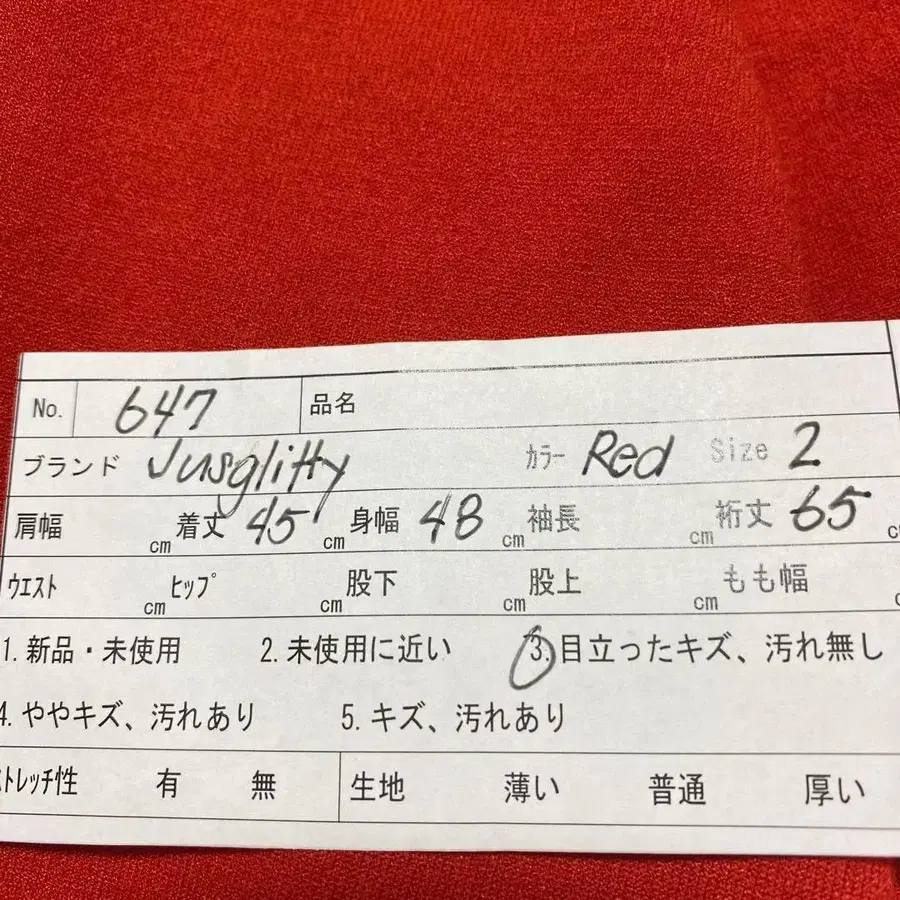 No. 647 品名
ブランド Jusglitty カラー Red Size 2
肩幅 cm 着丈 45 cm 身幅 48 cm 袖長 cm 裄丈 65 c
ウエスト cm ヒップ cm 股下 cm 股上 cm もも幅 c
1. 新品・未使用 2. 未使用に近い 3. 目立ったキズ、汚れ無し
4. ややキズ、汚れあり 5. キズ、汚れあり
ストレッチ性 有 無 生地 薄い 普通 厚い